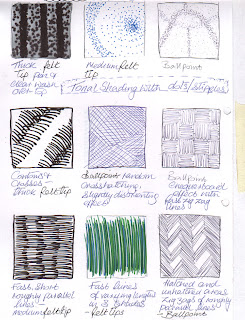 Thick felt
tip pen &
clear wash
over top
Medium felt
tip
Ballpoint
Tonal Shading with dots/stipples
Contours
Crosses
Thick felt tip
Ballpoint random
crosshatching
slightly disorienting
effect
Ballpoint
Checkerboard
effect with
fast zig zag
lines
Fast short
roughly parallel
lines -
Medium felt tip
Fast lines
of varying lengths
in 3
- felt tips
Hatched and
unhatched areas
Zig zags of roughly
parallel lines
- Ballpoint